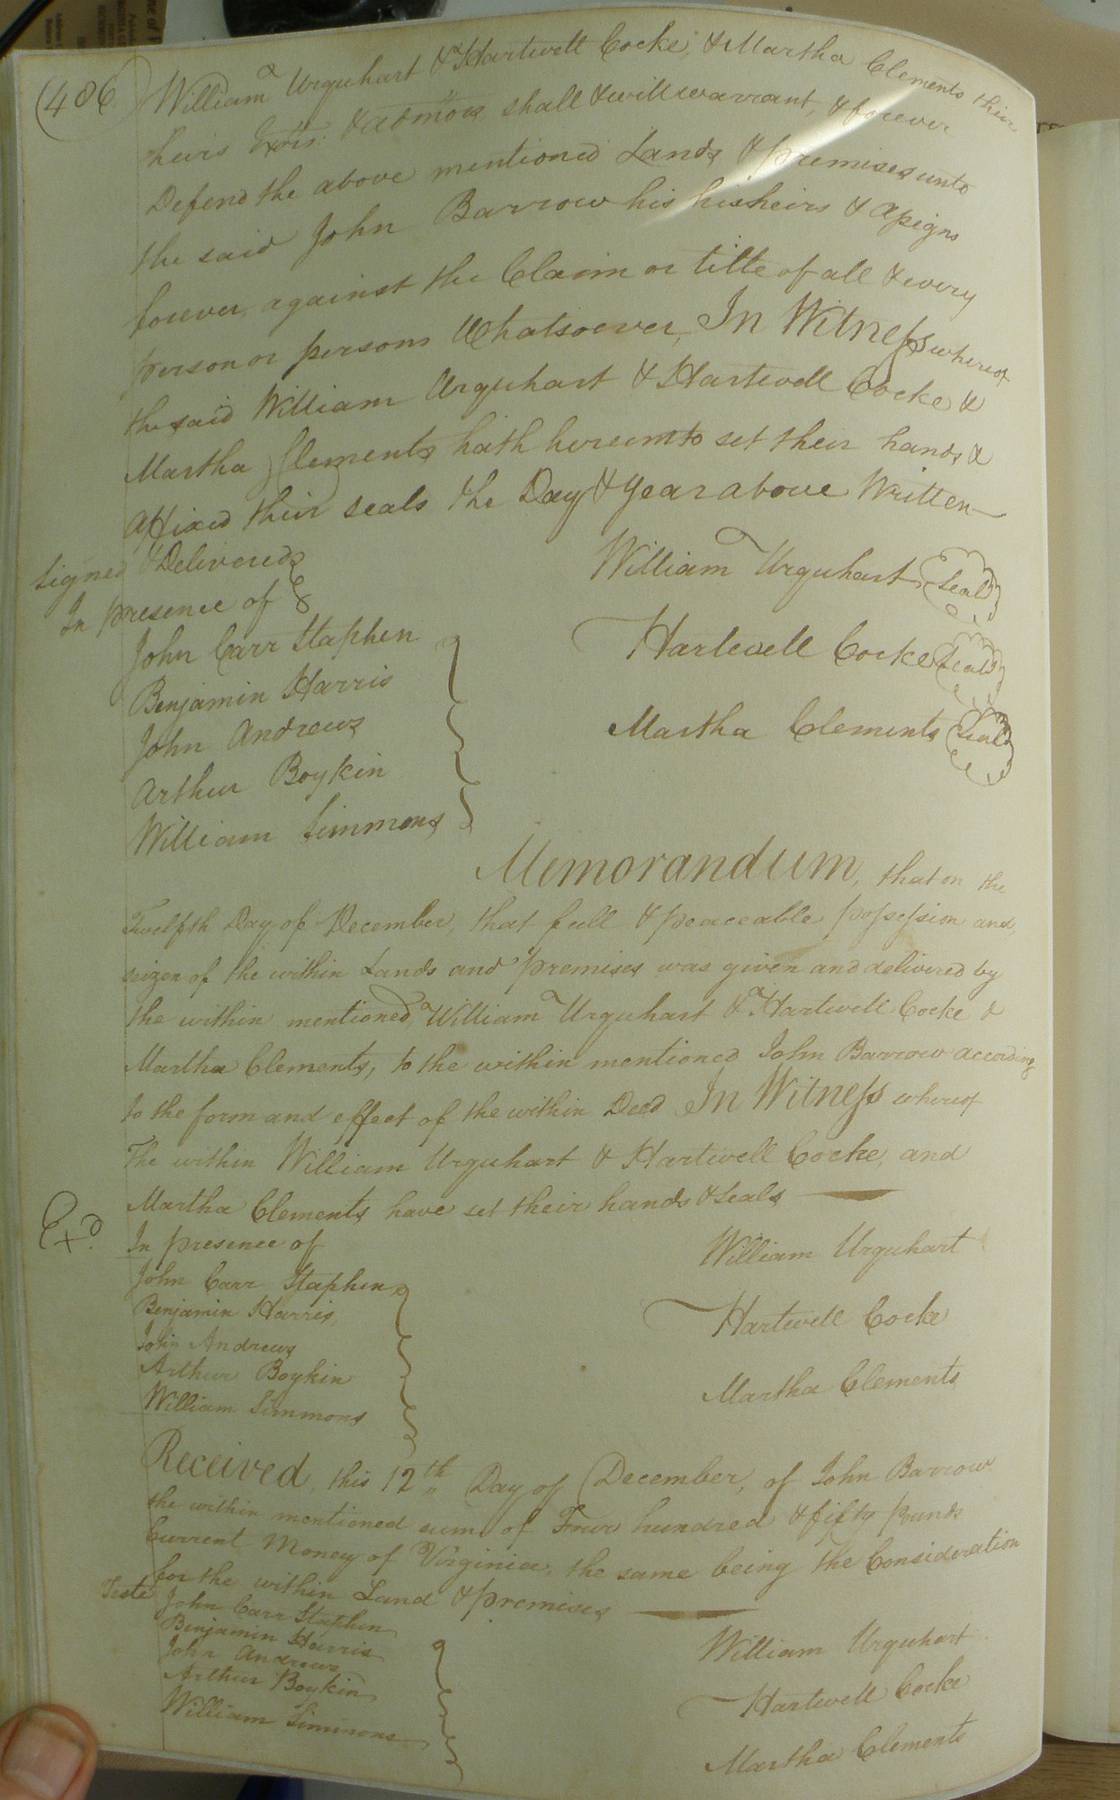 (406
William Urquhart & Hartwell Cocke, & Martha Clements their
heirs Exrs. & admors shall & will warrant, & forever
Defend the above mentioned Lands & premises unto
the said John Barrow his his heirs & assigns
forever, against the Claim or title of all & every
person or persons Whatsoever, In Witness whereof
the said William Urquhart & Hartwell Cocke &
Martha Clements hath hereunto set their hands &
affixed their seals the Day & Year above Written
Signed & Delivered
In presence of
John Carr Staphen
Benjamin Harris
John Andrews
Arthur Boykin
William Simmons
William Urquhart Seal
Hartwell Cocke Seal
Martha Clements Seal
Memorandum, that on the
Twelfth Day of December, that full & peaceable possession and
seizen of the within Lands and premises was given and delivered by
the within mentioned, William Urquhart & Hartwell Cocke &
Martha Clements, to the within mentioned John Barrow according
to the form and effect of the within Deed In Witness whereof
The within William Urquhart & Hartwell Cocke, and
Martha Clements have set their hands & Seals
Exd.
In presence of
John Carr Staphen
Benjamin Harris
John Andrews
Arthur Boykin
William Simmons
William Urquhart
Hartwell Cocke
Martha Clements
Received, this 12th Day of December, of John Barrow
the within mentioned sum of Four hundred & fifty Pounds
Current Money of Virginia, the same being the Consideration
for the within Land & premises
Teste John Carr Staphen
Benjamin Harris
John Andrews
Arthur Boykin
William Simmons
William Urquhart
Hartwell Cocke
Martha Clements